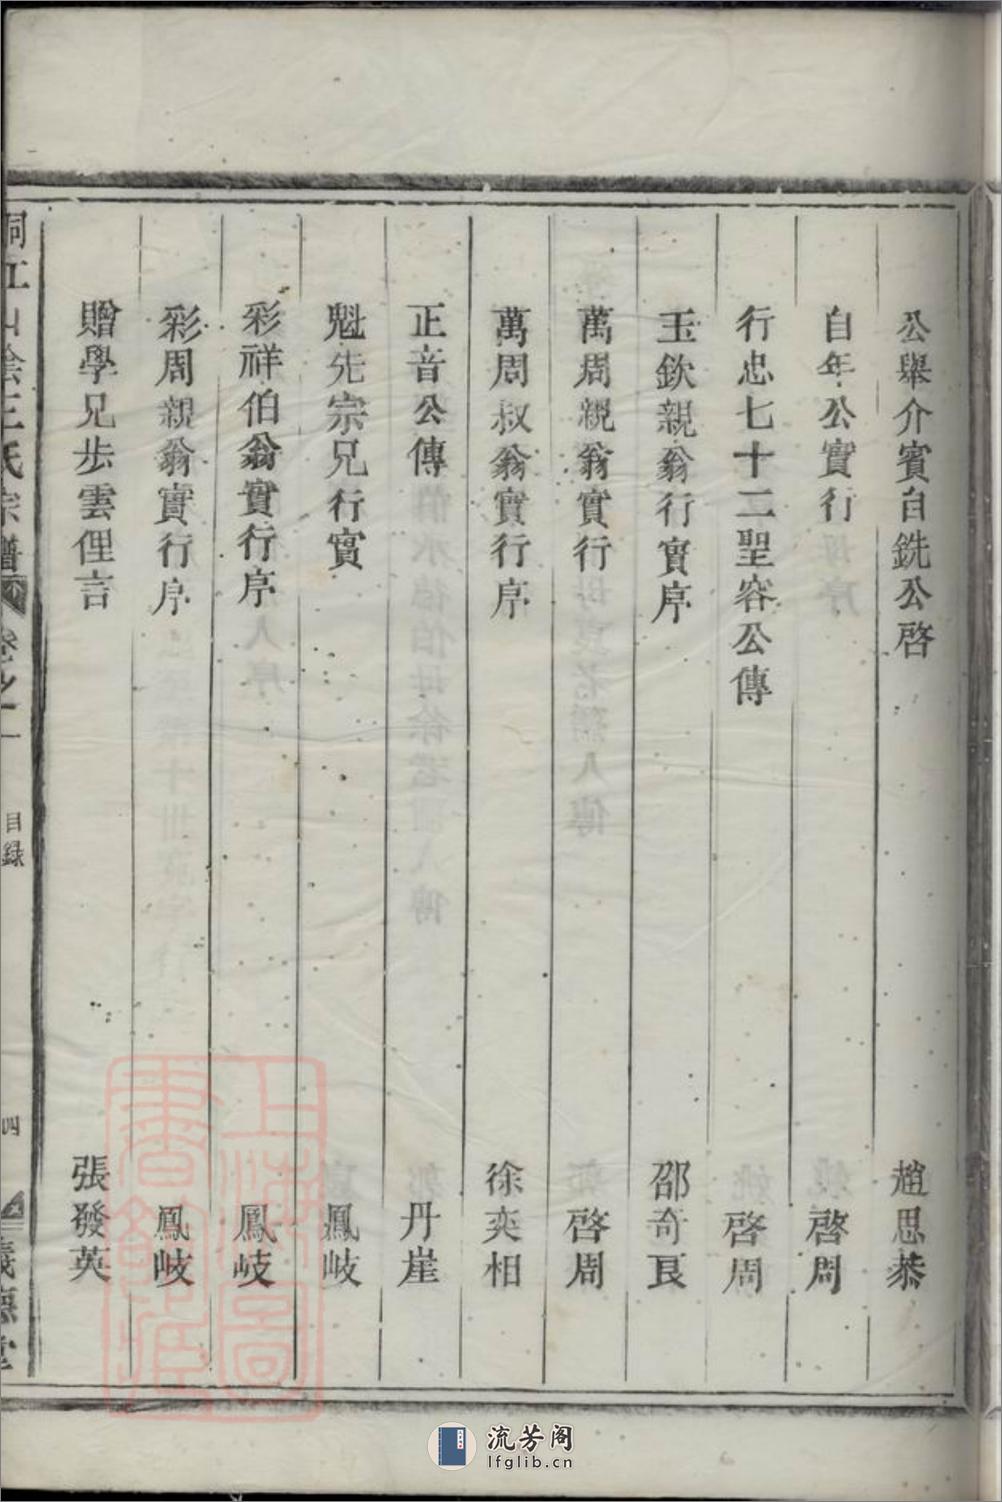 公舉介賓自銑公啓 趙思恭
自年公實行 啓周
行忠七十二聖容公傳 啓周
玉欽親翁行實序 邵奇艮
萬周親翁實行 啓周
萬周叔翁實行序 徐奕相
正音公傳 丹崖
魁先宗兄行實 鳳岐
彩祥伯翁實行序 鳳岐
彩周親翁實行序 鳳岐
贈學兄步雲俚言 張發英
桐江山陰王氏宗譜 卷之一 目録 四 義德堂
上海圖書館藏
流芳阁
lfglib.cn